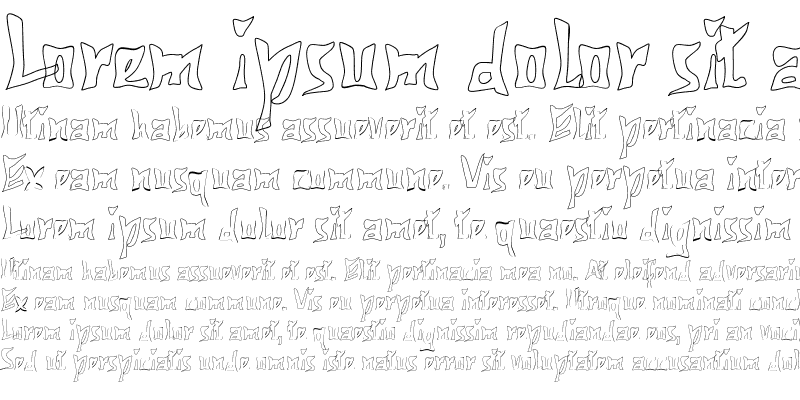 Lorem ipsum dolor sit a
Utinam habemus assueverit et est. Elit pertinacia
Ex eam nusquam commune. Vis eu perpetua inter
Lorem ipsum dolor sit amet, te quaestio dignissim
Utinam habemus assueverit et est. Elit pertinacia mea no. At eleifend adversari
Ex eam nusquam commune. Vis eu perpetua interesset. Utroque nominati cond
Lorem ipsum dolor sit amet, te quaestio dignissim repudiandae eos, pri an voci
Sed ut perspiciatis unde omnis iste natus error sit voluptatem accusantium dol